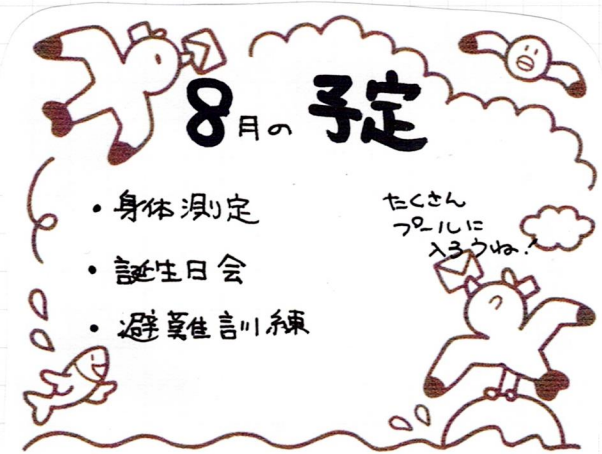 8月の予定
・身体測定
・誕生日会
・避難訓練
たくさん
プールに
入ろうね!